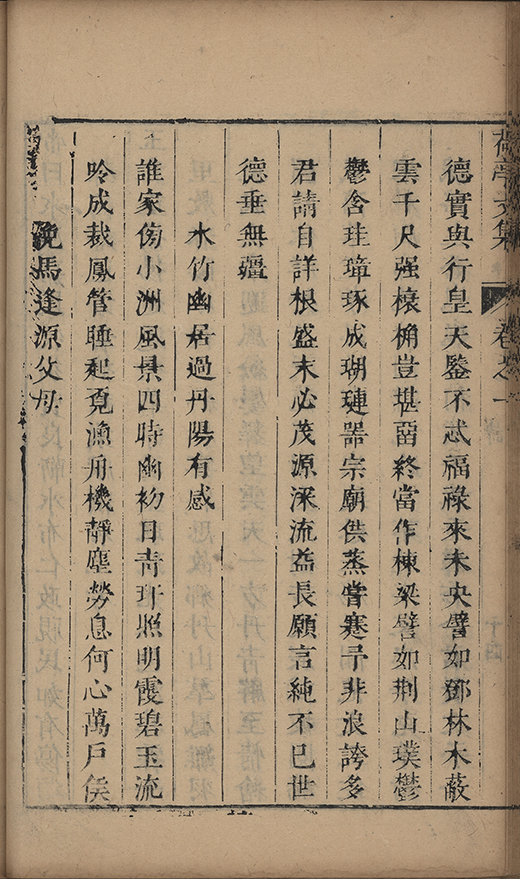 德實與行皇天鑒不忒福祿來未央譬如鄧林木蔽
雲千尺强榱桷豈堪留終當作棟梁譬如荆山璞鬱
鬱含珪璋琢成瑚璉器宗廟供蒸嘗蹇予非浪誇多
君請自詳根盛末必茂源深流益長願言純不已世
德垂無疆
水竹幽居過丹陽有感
誰家傍小洲風景四時幽初日青玕照明霞碧玉流
吟成裁鳳管睡起覔漁舟機靜塵勞息何心萬戶侯
挽馬逢源父母
文集
卷之一